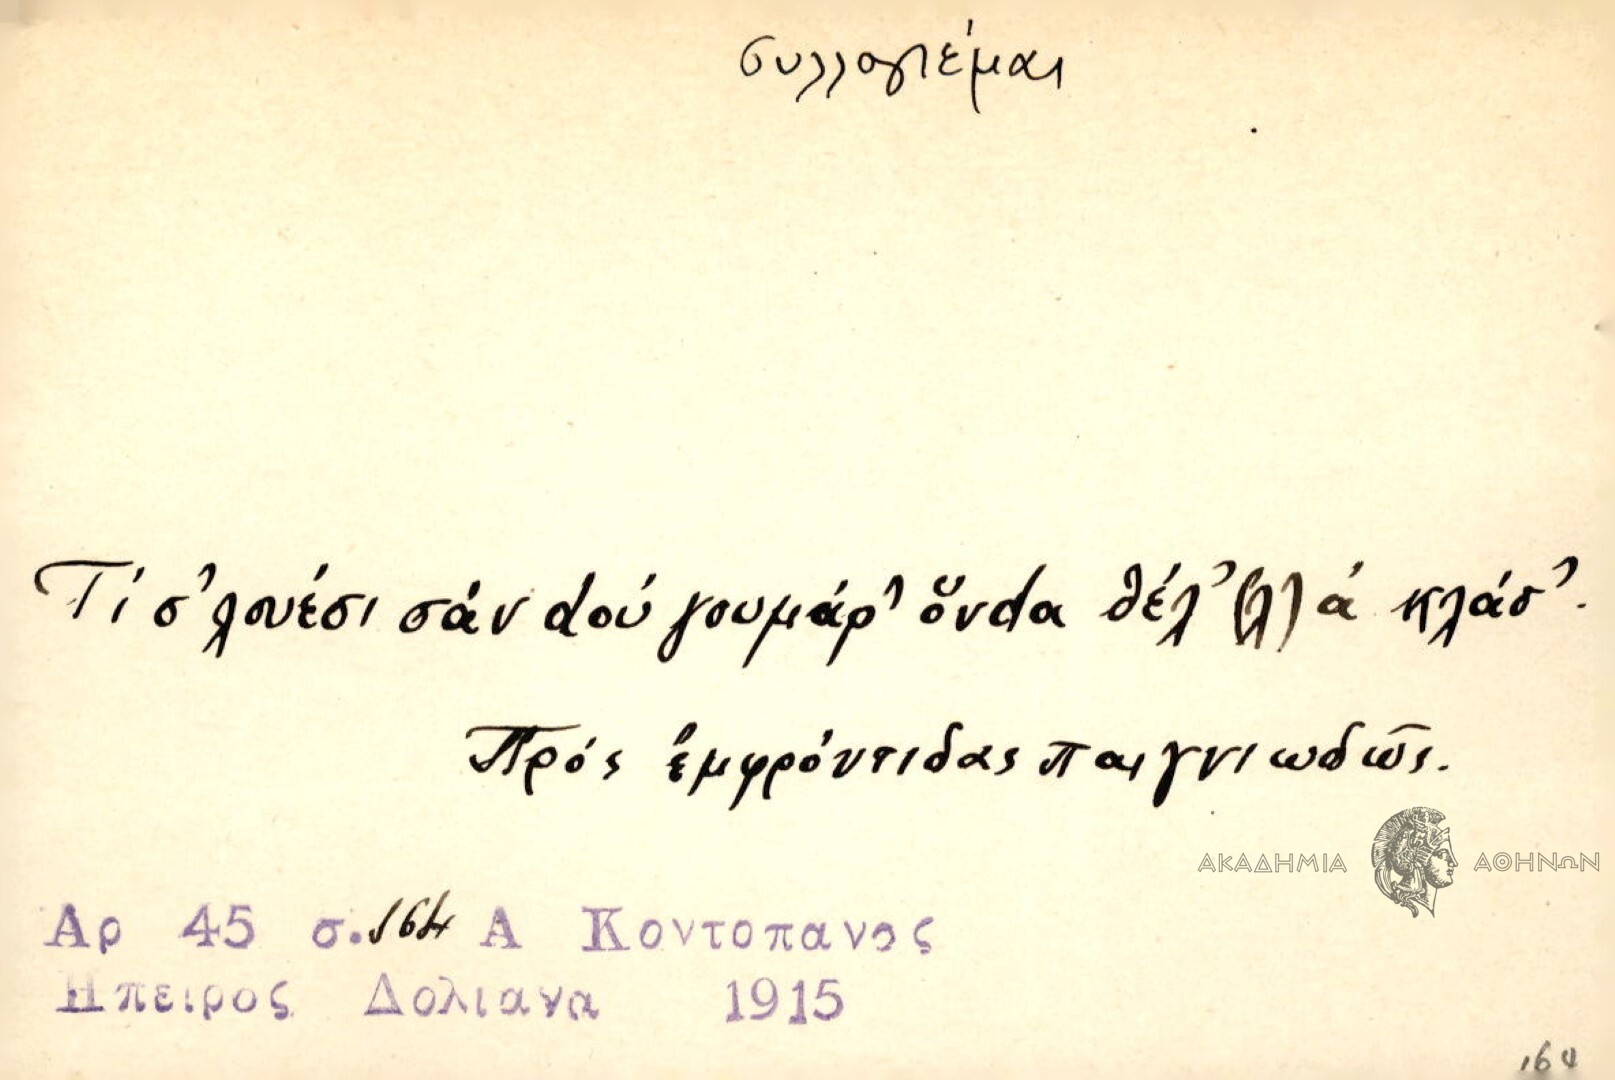 συλλογιέμαι
Τί σ'λουέσι σάν dού γουμάρ' ὅνdα θέλ' (λ) ά κλάσ'.
Πρός ἐμφρόντιδας παιγνιωδῶς.
ΑΚΑΔΗΜΙΑ ΑΘΗΝΩΝ
Αρ 45 σ. 164 Α Κοντοπανος
Ηπειρος Δολιανα 1915
164